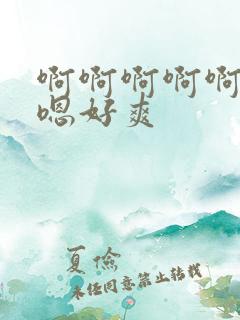 啊啊啊啊啊
嗯好爽
夏俭
未经同意禁止转载